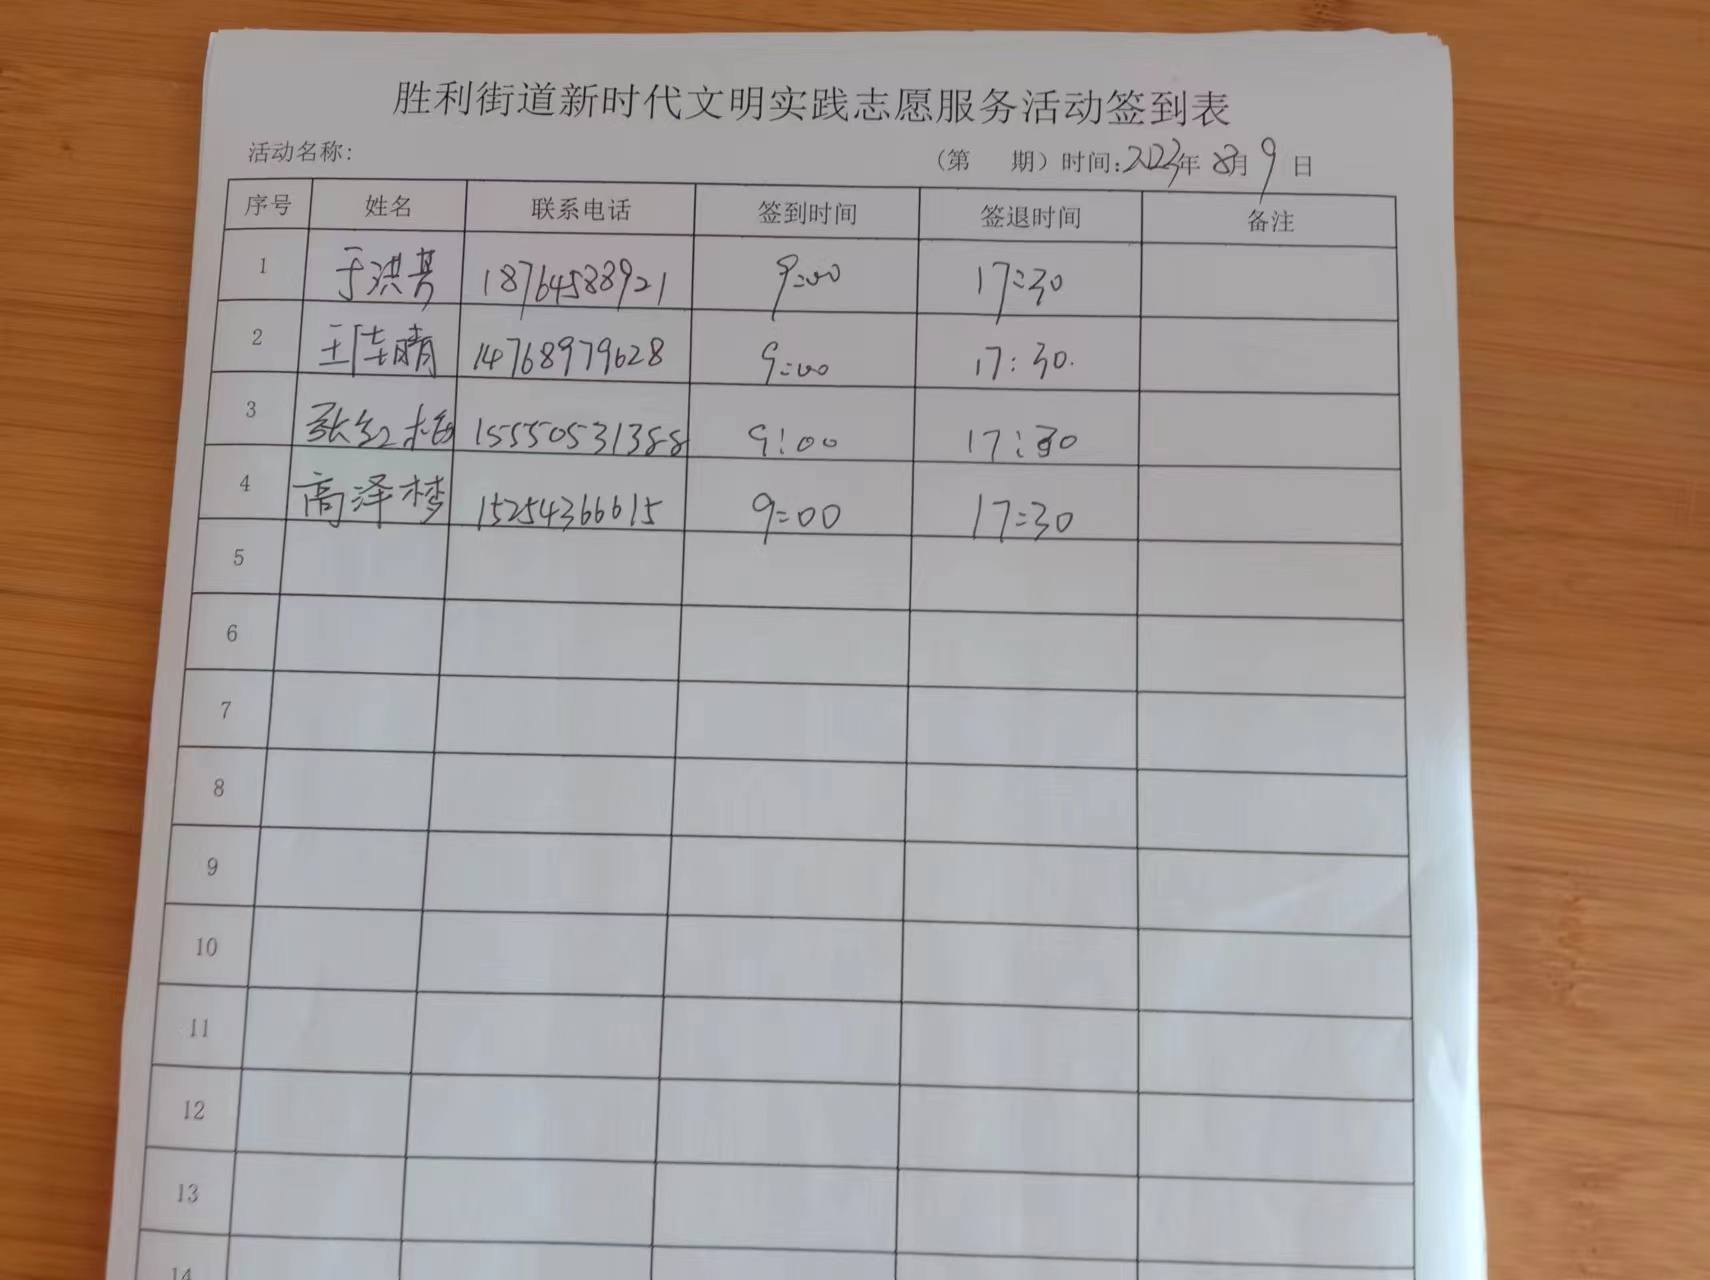 胜利街道新时代文明实践志愿服务活动签到表
活动名称: （第 期）时间:2023年8月9日
序号 姓名 联系电话 签到时间 签退时间 备注
1 于洪 18764588921 9:00 17:30
2 王佳晴 14768979628 9:00 17:30.
3 张红梅 15550531388 9:00 17:30
4 高泽梦 15254366615 9:00 17:30
5
6
7
8
9
10
11
12
13
14